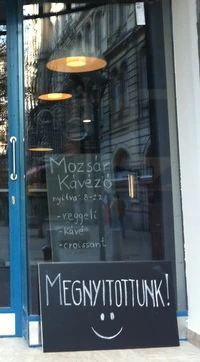 Mozsár
Kávézó
nyitva: 8-22
-reggeli
-kávé
-croissant
MEGNYITOTTUNK!